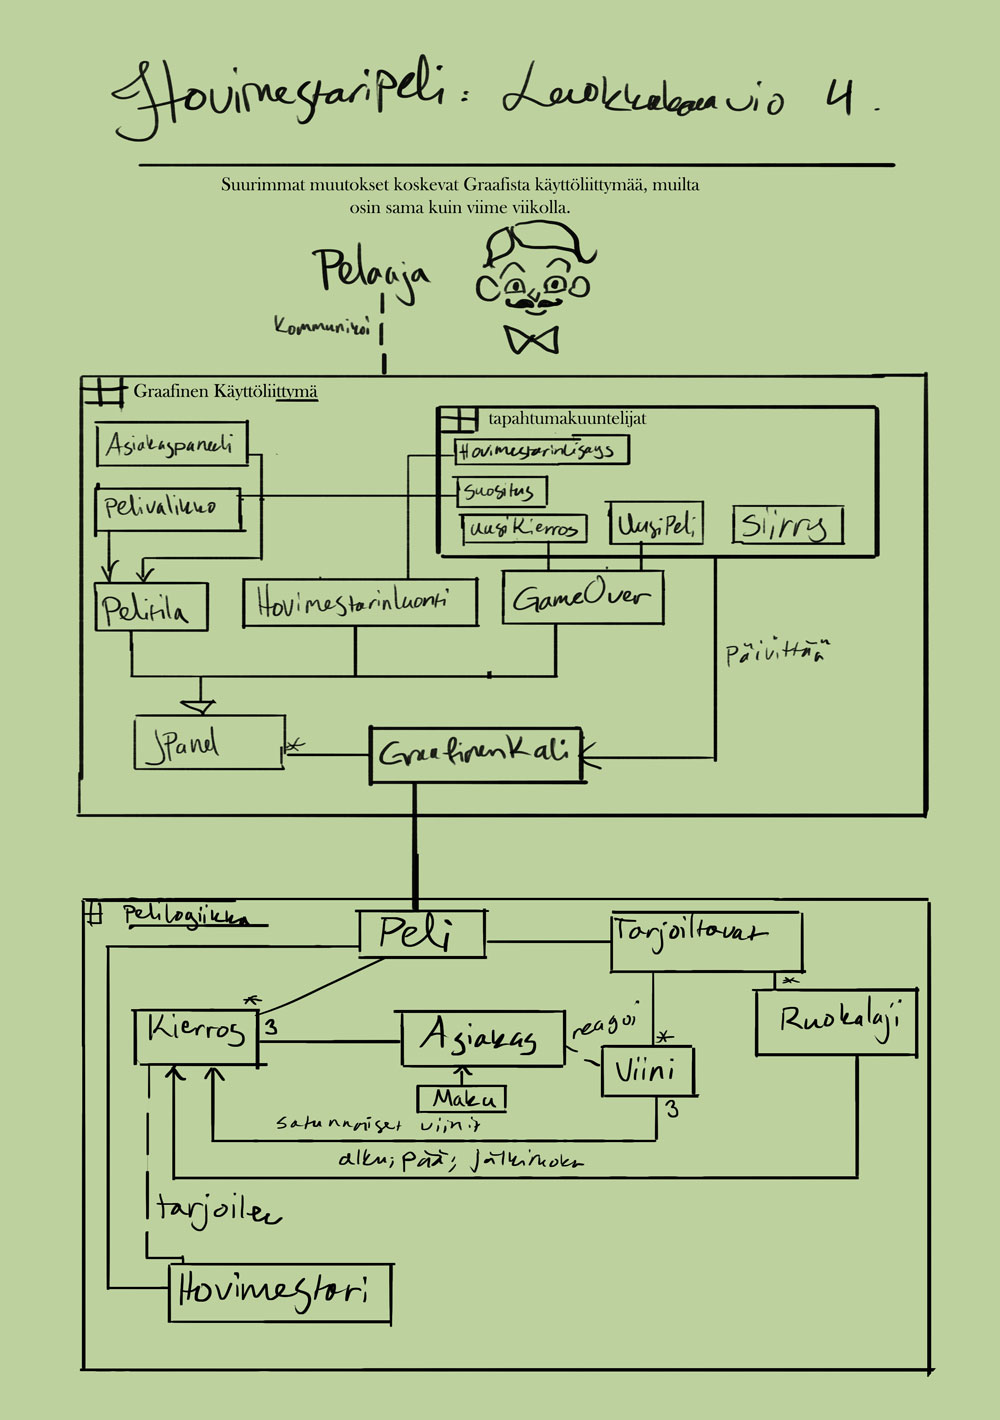 Hovimestaripeli: Luokkakaavio 4.
Suurimmat muutokset koskevat Graafista käyttöliittymää, muilta
osin sama kuin viime viikolla.
Pelaaja
Kommunikoi
Graafinen Käyttöliittymä
tapahtumakuuntelijat
Asiakaspaneeli
Hovimestarinlisäys
Pelivalikko
Suositus
UusiKierros
UusiPeli
Siirry
Pelitila
Hovimestarinluonti
GameOver
Päivittää
JPanel
*
GraafinenKali
Pelilogiikka
Peli
Tarjoiltavat
*
*
Ruokalaji
Kierros
3
Asiakas
reagoi
*
Viini
Maku
3
satunnaiset viinit
alku; pää; jälkiruoka
tarjoilee
Hovimestari